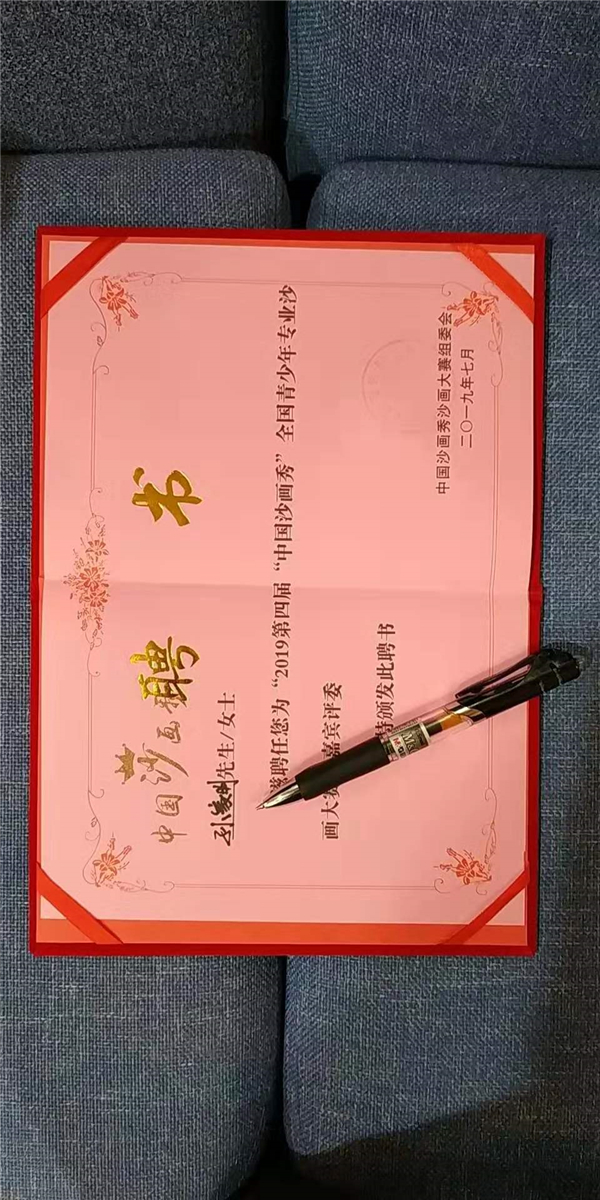 中国沙画
聘 书
先生/女士
聘任您为“2019第四届“中国沙画秀”全国青少年专业沙
画大赛 嘉宾评委
颁发此聘书
中国沙画秀沙画大赛组委会
二〇一九年七月